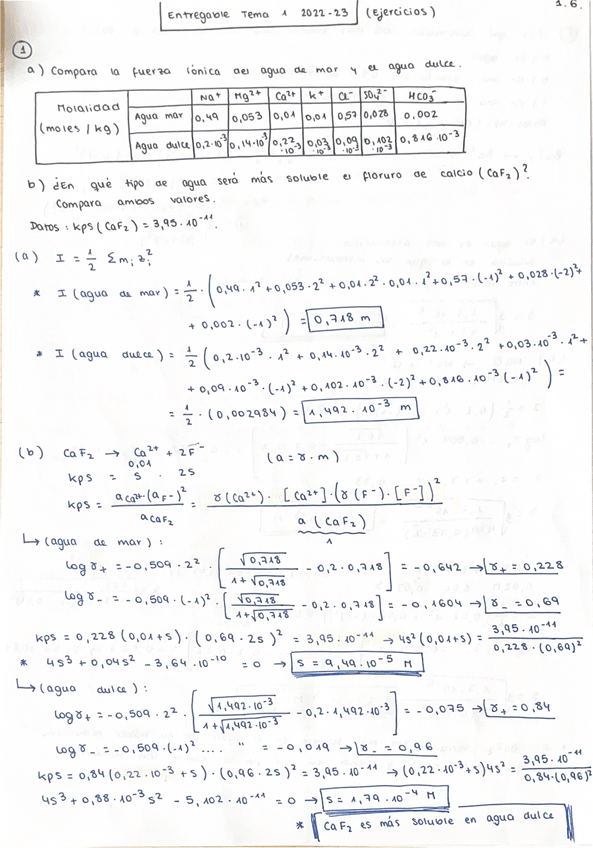 1.6.
Entregable Tema 1 2022-23 (Ejercicios)
①
a) Compara la fuerza iónica del agua de mar y el agua dulce.
Molalidad (moles / kg) Na⁺ Mg²⁺ Ca²⁺ K⁺ Cl⁻ SO₄²⁻ HCO₃⁻
Agua mar 0,49 0,053 0,01 0,01 0,57 0,028 0,002
Agua dulce 0,2·10⁻³ 0,14·10⁻³ 0,22·10⁻³ 0,03·10⁻³ 0,09·10⁻³ 0,102·10⁻³ 0,816·10⁻³
b) ¿En qué tipo de agua será más soluble el floruro de calcio (CaF₂)?
Compara ambos valores.
Datos: kps (CaF₂) = 3,95·10⁻¹¹.
(a) I = 1/2 Σ mᵢ zᵢ²
* I (agua de mar) = 1/2 · (0,49·1² + 0,053·2² + 0,01·2² · 0,01·1² + 0,57·(-1)² + 0,028·(-2)² +
+ 0,002·(-1)²) = 0,718 m
* I (agua dulce) = 1/2 (0,2·10⁻³ · 1² + 0,14·10⁻³·2² + 0,22·10⁻³·2² + 0,03·10⁻³·1² +
+ 0,09·10⁻³·(-1)² + 0,102·10⁻³·(-2)² + 0,816·10⁻³(-1)²) =
= 1/2 · (0,002984) = 1,492·10⁻³ m
(b) CaF₂ → Ca²⁺ + 2F⁻ (a = γ·m)
0,01
kps = S · 2S
kps = a Ca²⁺·(a F⁻)² / a CaF₂ = γ(Ca²⁺)·[Ca²⁺]·(γ(F⁻)·[F⁻])² / a (CaF₂)
1
↳ (agua de mar):
log γ₊ = -0,509·2² · [√0,718 / 1+√0,718 - 0,2·0,718] = -0,642 → γ₊ = 0,228
log γ₋ = -0,509·(-1)² · [√0,718 / 1+√0,718 - 0,2·0,718] = -0,1604 → γ₋ = 0,69
kps = 0,228 (0,01+S) · (0,69·2S)² = 3,95·10⁻¹¹ → 4S²(0,01+S) = 3,95·10⁻¹¹ / 0,228·(0,69)²
* 4S³ + 0,04S² - 3,64·10⁻¹⁰ = 0 → S = 9,49·10⁻⁵ M
↳ (agua dulce):
log γ₊ = -0,509·2² · [√1,492·10⁻³ / 1+√1,492·10⁻³ - 0,2·1,492·10⁻³] = -0,075 → γ₊ = 0,84
log γ₋ = -0,509·(-1)² .... " = -0,019 → γ₋ = 0,96
kps = 0,84 (0,22·10⁻³ + S) · (0,96·2S)² = 3,95·10⁻¹¹ → (0,22·10⁻³+S)4S² = 3,95·10⁻¹¹ / 0,84·(0,96)²
4S³ + 0,88·10⁻³S² - 5,102·10⁻¹¹ = 0 → S = 1,79·10⁻⁴ M
* CaF₂ es más soluble en agua dulce